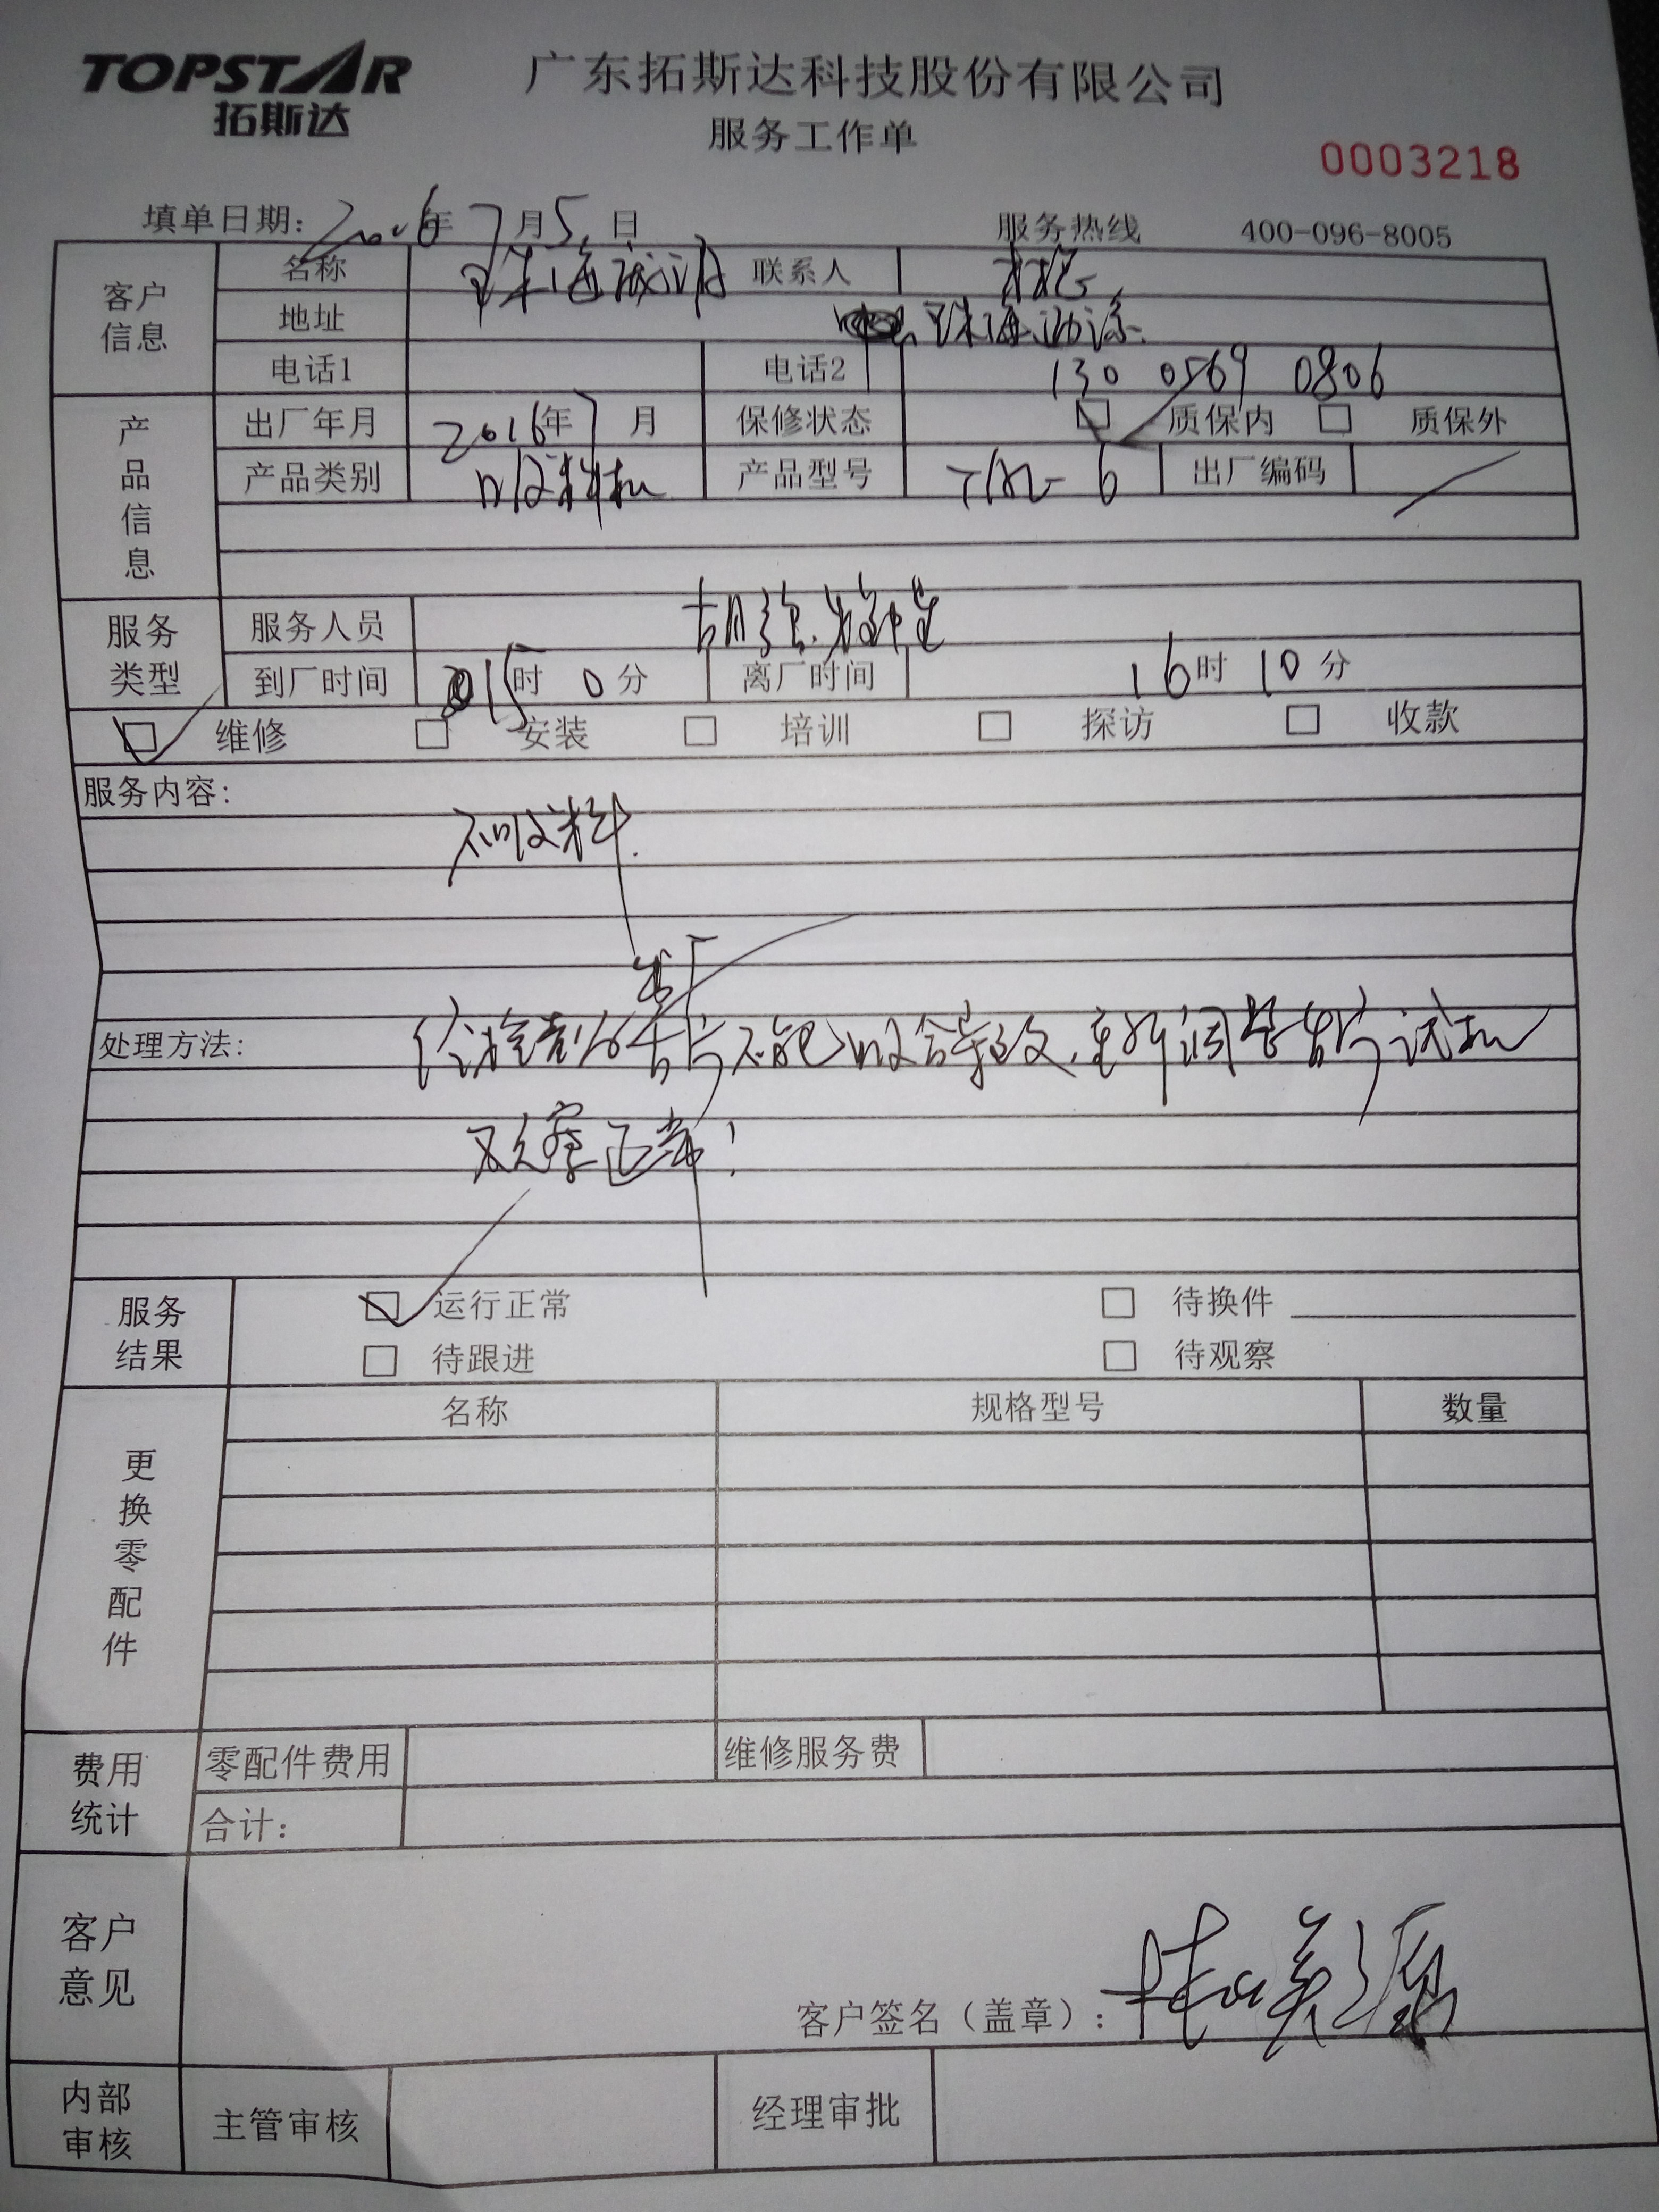 TOPSTAR
拓斯达
广东拓斯达科技股份有限公司
服务工作单
0003218
填单日期: 2016年7月5日 服务热线 400-096-8005
客户信息
名称 珠海 联系人
地址 珠海
电话1 电话2 130 0569 0806
产品信息
出厂年月 2016年7月 保修状态 质保内 质保外
产品类别 吸料机 产品型号 出厂编码
服务类型
服务人员 胡强.
到厂时间 15时0分 离厂时间 16时10分
维修 安装 培训 探访 收款
服务内容:
不吸料.
处理方法: 不能吸合导致,重新调整 试机
观察正常!
服务结果
运行正常 待换件
待跟进 待观察
更换零配件
名称 规格型号 数量
费用统计
零配件费用 维修服务费
合计:
客户意见
客户签名（盖章）:
内部审核
主管审核 经理审批